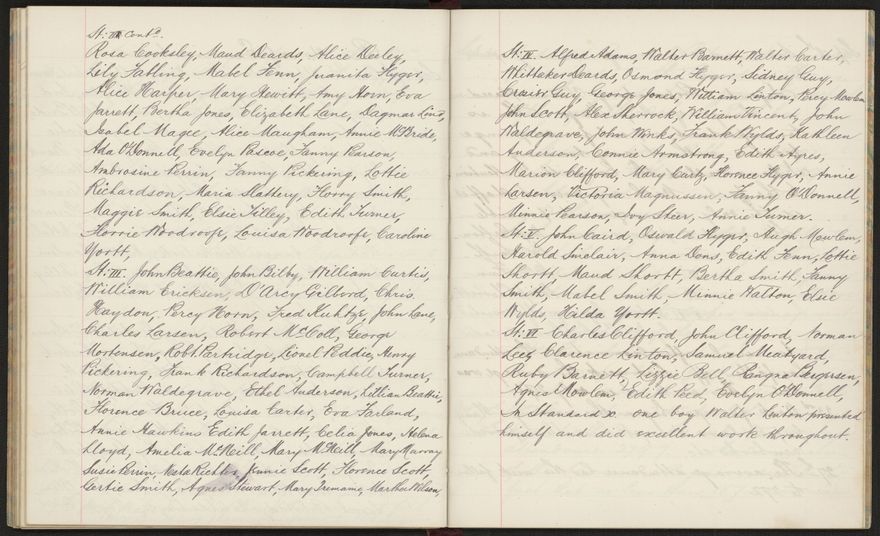 St: II Cont^d.
Rosa Cooksley, Maud Deards, Alice Deeley,
Lily Fatling, Mabel Fenn, Juanita Flyger,
Alice Harper, Mary Hewitt, Amy Horn, Eva
Jarrett, Bertha Jones, Elizabeth Lane, Dagmar Lund,
Isabel Magee, Alice Maugham, Annie McBride,
Ada O'Donnell, Evelyn Pascoe, Fanny Pearson
Ambrosine Perrin, Fanny Pickering, Lottie
Richardson, Maria Slattery, Florry Smith,
Maggie Smith, Elsie Tilley, Edith Turner,
Florrie Woodroofe, Louisa Woodroofe, Caroline
Yortt,
St: III. John Beattie, John Bilby, William Curtis,
William Ericksen, D'Arcy Gilbord, Chris.
Haydon, Percy Horn, Fred Kuhtze, John Lane,
Charles Larsen, Robert McColl, George
Mortensen, Robt. Partridge, Lionel Peddie, Henry
Pickering, Frank Richardson, Campbell Turner,
Norman Waldegrave, Ethel Anderson, Lillian Beattie,
Florence Bruce, Louisa Carter, Eva Farland,
Annie Hawkins Edith Jarrett, Celia Jones, Helena
Lloyd, Amelia McNeill, Mary McNeill, Mary Murray
Susie Perrin, Richter, Jennie Scott, Florence Scott,
Gertie Smith, Agnes Stewart, Mary Tremaine, Martha Wilson,
St: IV. Alfred Adams, Walter Barnett, Walter Carter,
Whittaker Deards, Osmond Flyger, Sidney Guy,
Guy, George Jones, William Linton, Percy Mowlem
John Scott, Alex Sherrock, William Vincent, John
Waldegrave, John Winks, Frank Wylds, Kathleen
Anderson, Connie Armstrong, Edith Ayres,
Marion Clifford, Mary Curtz, Florence Flyger, Annie
Larsen, Victoria Magnussen, Fanny O'Donnell,
Minnie Pearson, Ivy Steer, Annie Turner.
St: V. John Caird, Oswald Flyger, Hugh Mowlem,
Harold Sinclair, Anna Dons, Edith Fenn, Lottie
Shortt, Maud Shortt, Bertha Smith, Fanny
Smith, Mabel Smith, Minnie Watton, Elsie
Wylds, Hilda Yortt.
St: VI Charles Clifford, John Clifford, Norman
Lee, Clarence Linton, Samuel Meatyard,
Ruby Barnett, Lizzie Bell, Ragna Beyersen,
Agnes Mowlem, Edith Peed, Evelyn O'Donnell,
In Standard X one boy Walter Linton presented
himself and did excellent work throughout.